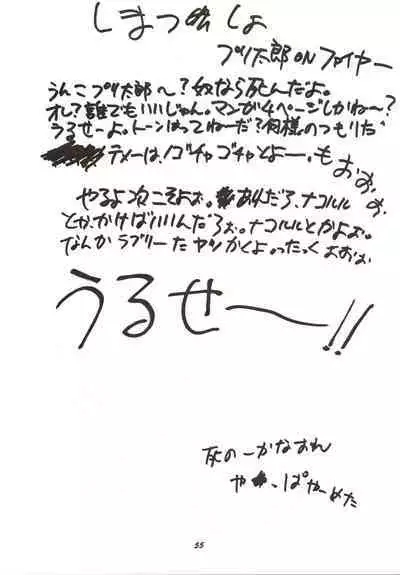 しまつ書しょ
プリ太郎 ON ファイヤー
うんこプリ太郎〜？奴なら死んだよ。
オレ？誰でもいいじゃん。マンガ4ページしかね〜？
うるせーよ。トーンはってねーだ？何様のつもりだ
テメーは！ゴチャゴチャとよー。もぉぉぉ
やるよ次こそよぉ。あれだろ、ナコルル
とか、かけばいいんだろぉ。ナコルルとかよぉ。
なんかラブリーたヤツかくよ。ったくよおぉ
うるせ〜!!
灰の一かなおれ
や、ぱやーめた
55